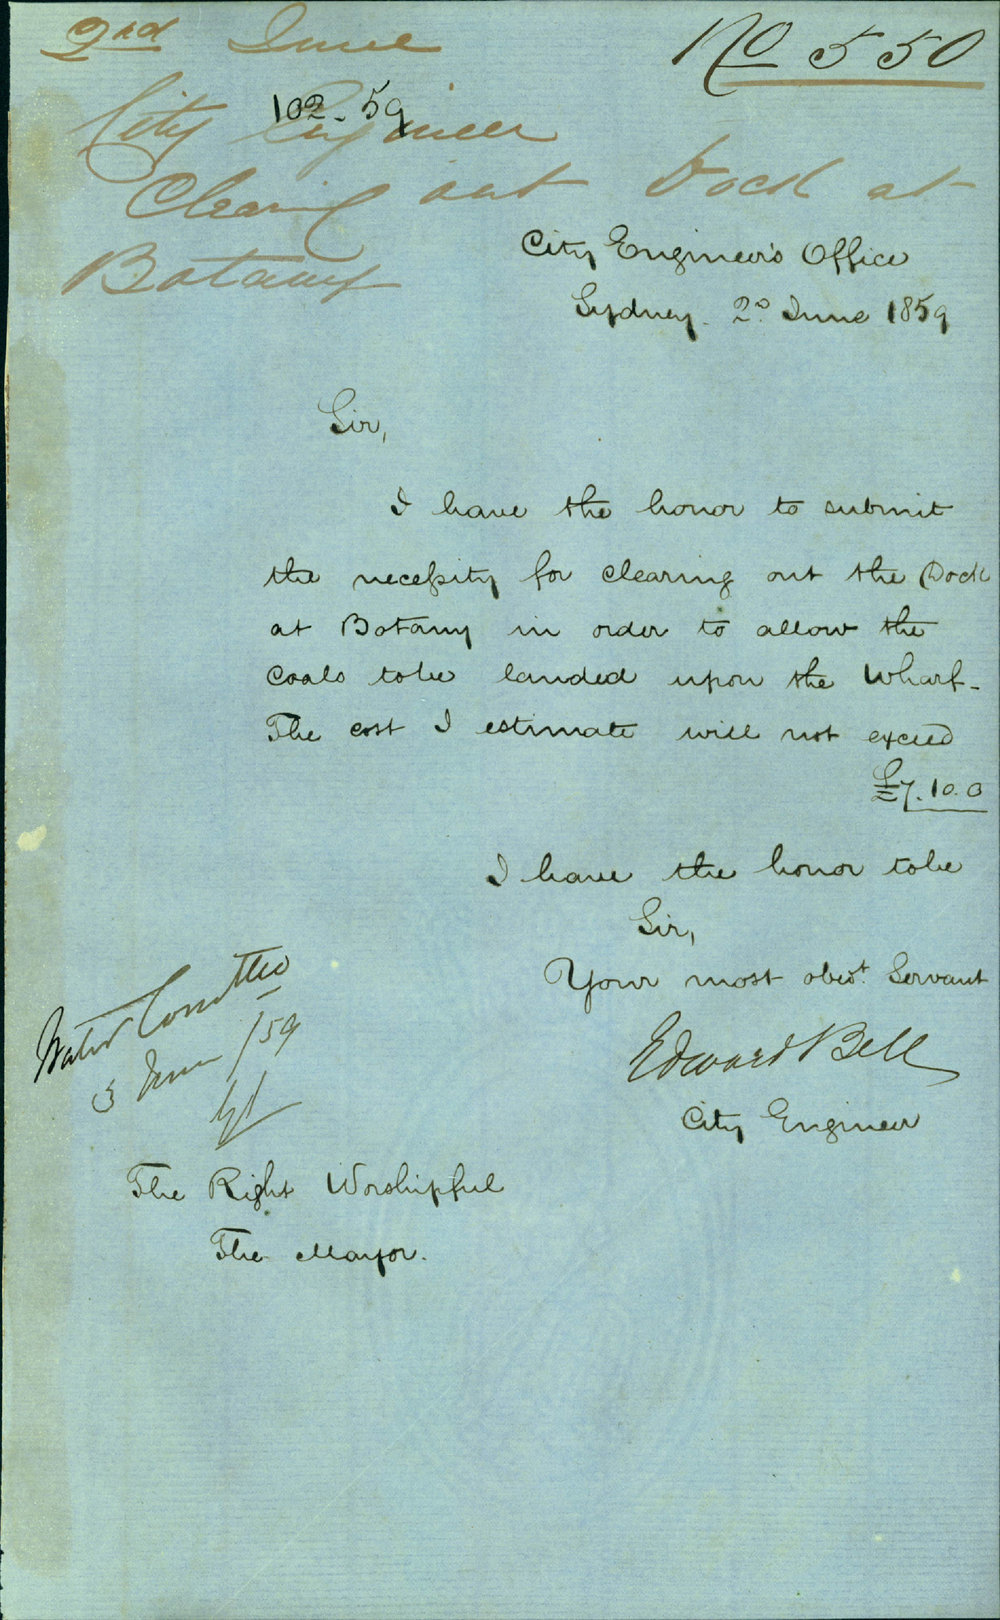 2nd June
No 550
102-59
City Engineer
Clearing out Dock at
Botany
City Engineer's Office
Sydney. 2d June 1859
Sir,
I have the honor to submit
the necessity for clearing out the Dock
at Botany in order to allow the
Coals to be landed upon the Wharf-
The cost I estimate will not exceed
£7.10.0
I have the honor to be
Sir,
Your most obedt. Servant
Edward Bell
City Engineer
Water Comttee
3 June /59
The Right Worshipful
The Mayor.